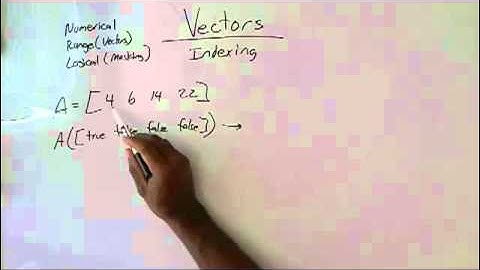 Numerical
Range (Vectors)
Logical (Masking)
Vectors
Indexing
A = [ 4 6 14 22 ]
A([true false false false]) →